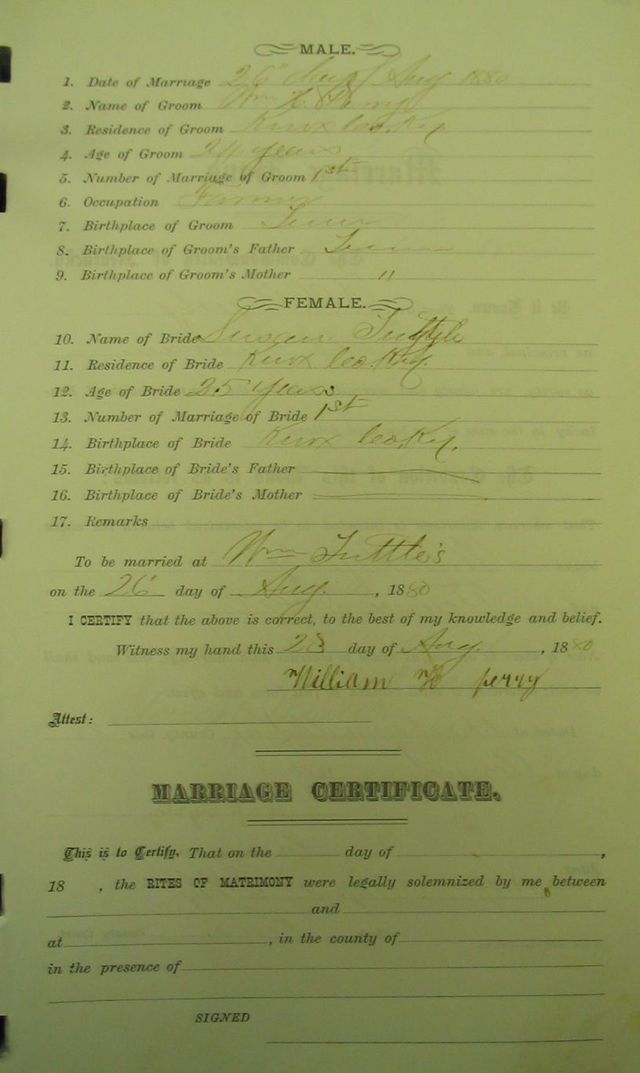 MALE.
1. Date of Marriage 26 Aug 1880
2. Name of Groom Wm H Perry
3. Residence of Groom Knox Co Ky
4. Age of Groom years
5. Number of Marriage of Groom 1st
6. Occupation Farmer
7. Birthplace of Groom Tenn
8. Birthplace of Groom's Father Tenn
9. Birthplace of Groom's Mother "
FEMALE.
10. Name of Bride Susan Tuttle
11. Residence of Bride Knox Co Ky.
12. Age of Bride 25 years
13. Number of Marriage of Bride 1st
14. Birthplace of Bride Knox Co Ky.
15. Birthplace of Bride's Father
16. Birthplace of Bride's Mother
17. Remarks
To be married at Wm Tuttle's
on the 26 day of Aug. , 1880
I CERTIFY that the above is correct, to the best of my knowledge and belief.
Witness my hand this 23 day of Aug. , 1880
William H perry
Attest:
MARRIAGE CERTIFICATE.
This is to Certify, That on the day of ,
18 , the RITES OF MATRIMONY were legally solemnized by me between
and
at , in the county of
in the presence of
SIGNED